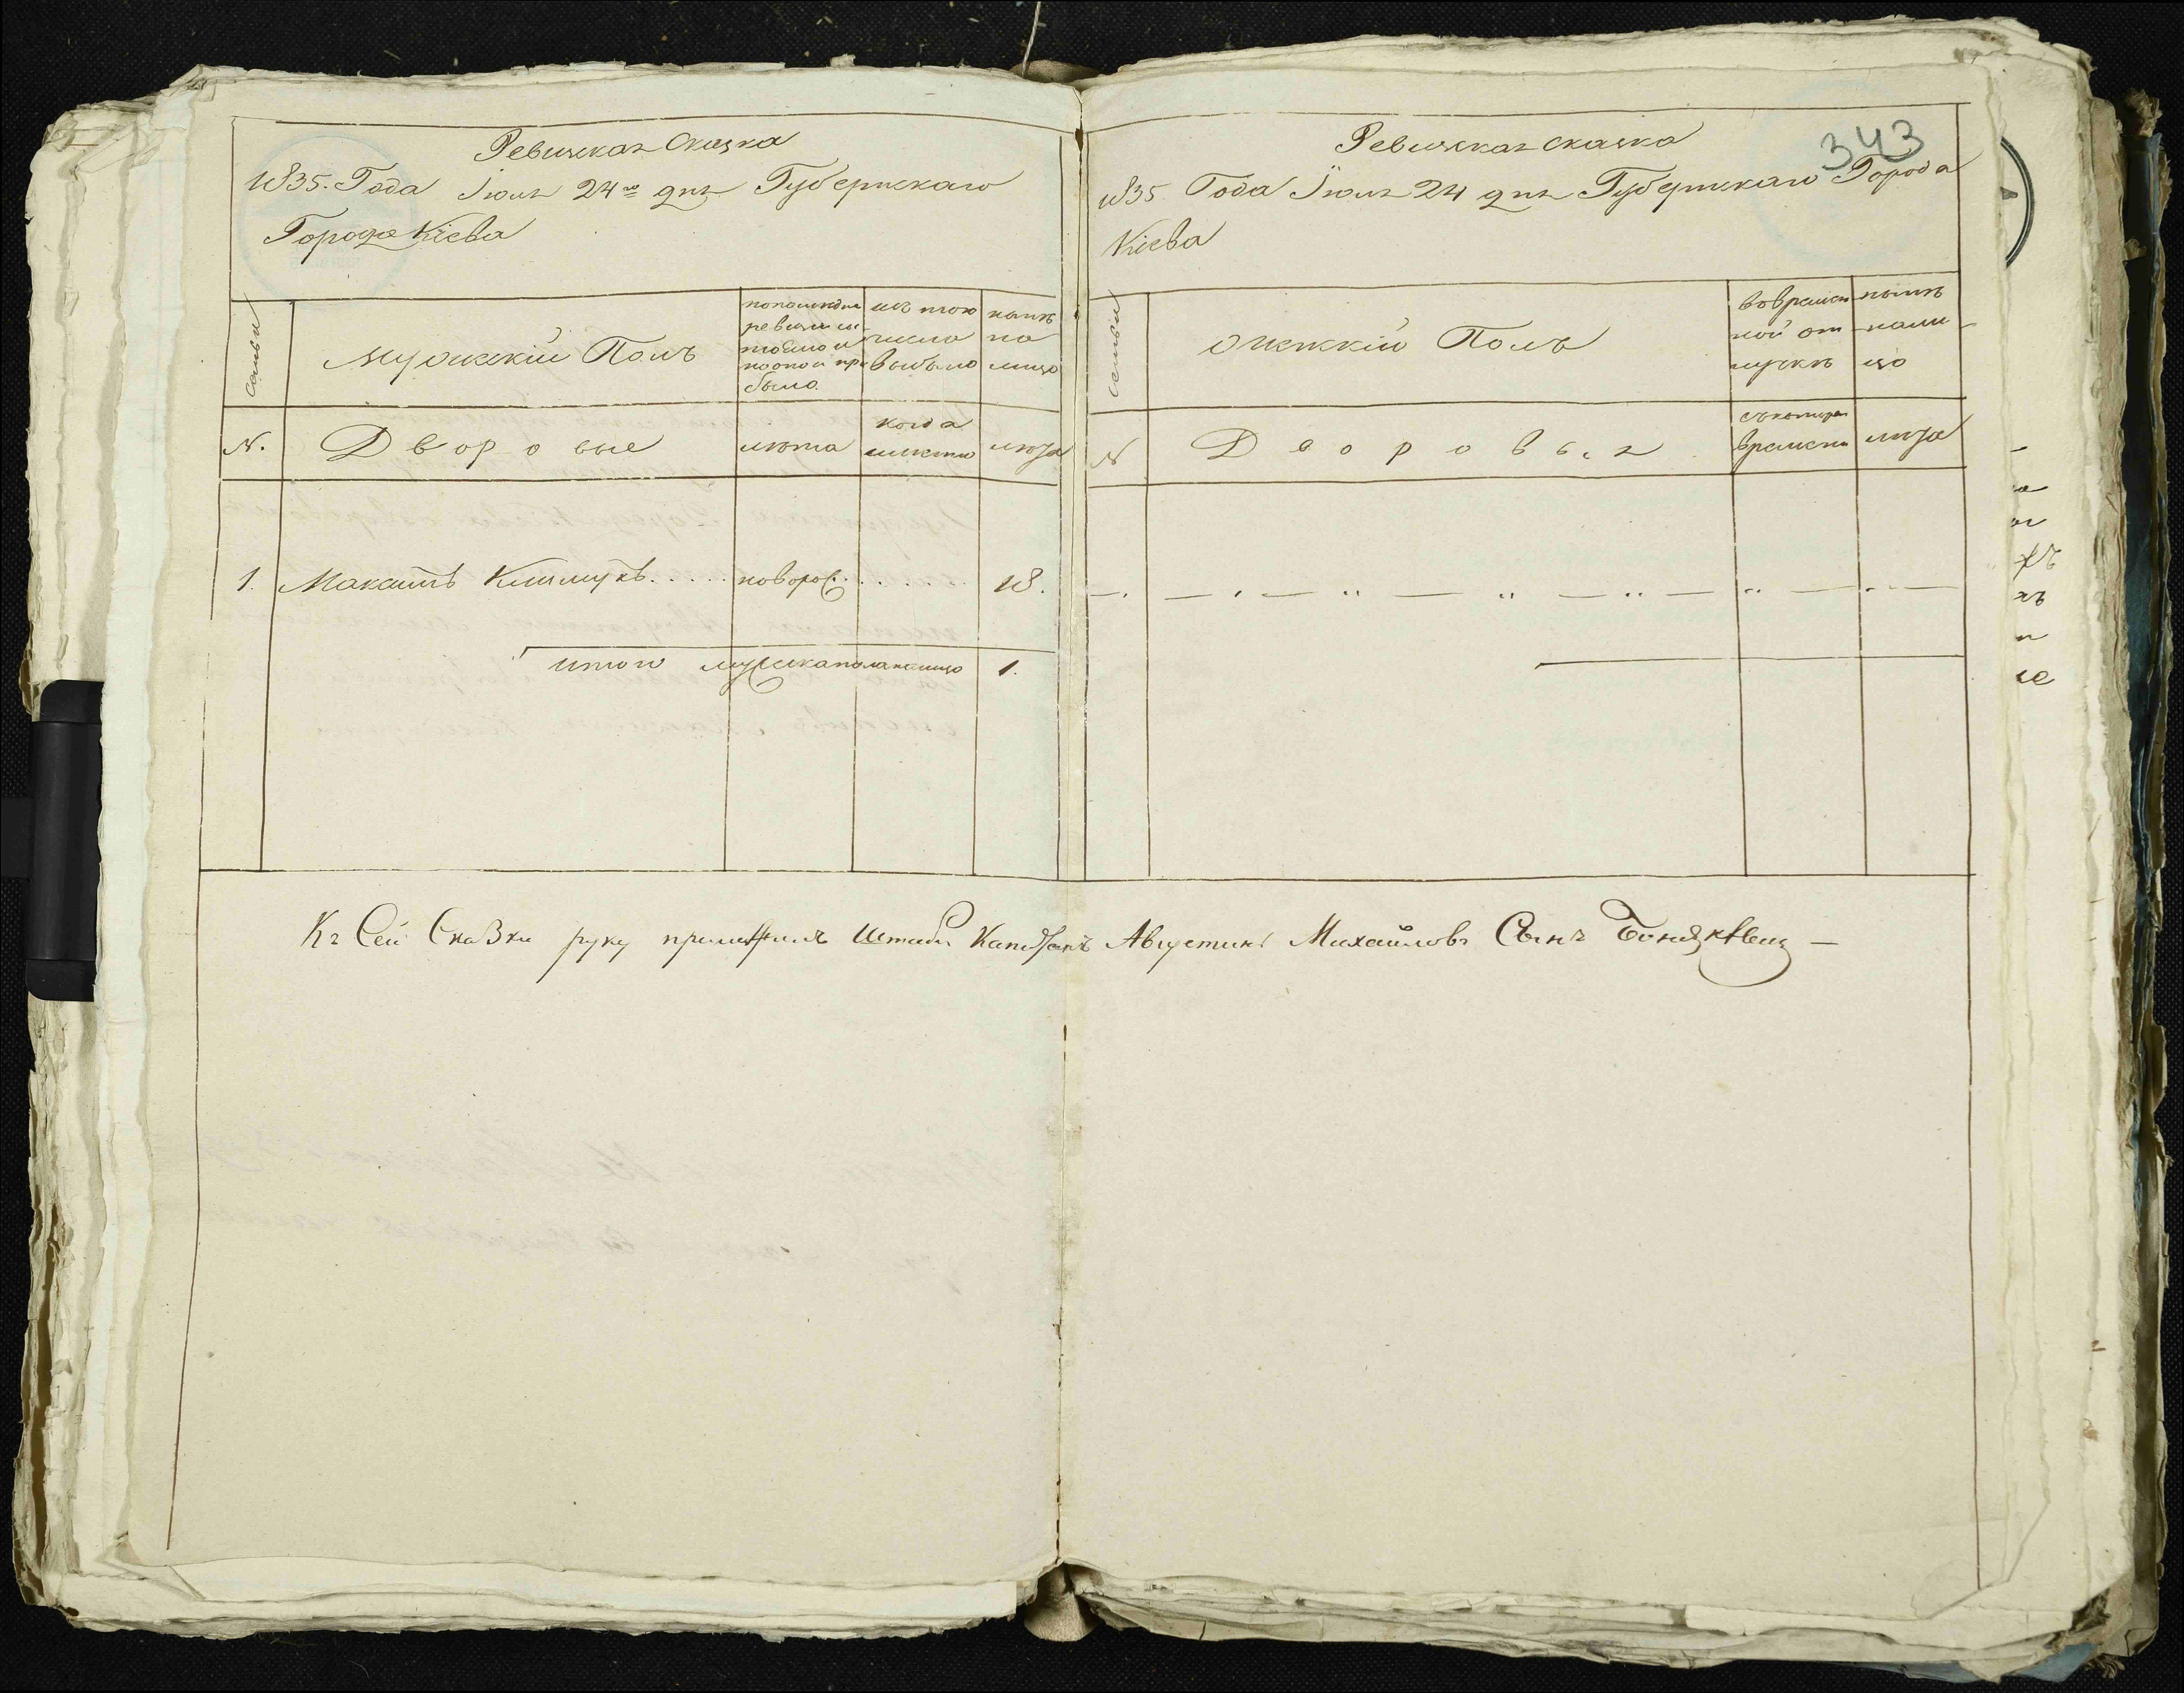 Ревижская Сказка
1835. Года Іюля 24го дня Губернскаго
Города Кіева
семьи
мужескій Полъ
попоследней
ревизіи со
стояло и
после он при
было
изъ того
числа
выбыло
нынѣ
на
лицо
N.
Дворовые
лѣта
когда
имянно
лѣта
1. Максимъ Климукъ. . . . . новорос. . . . . . . 18.
итого мужска пола налицо 1.
343
Ревижская сказка
1835 Года Іюля 24 дня Губернскаго Города
Кіева
семьи
женскій Полъ
во времен
ной от
лучкѣ
нынѣ
нали
цо
N
Дворовыя
съ котораго
времени
лѣта
Къ Сей СкаЗки руку приложилъ Штабсъ Капитанъ Августинъ Михайловъ Сынъ